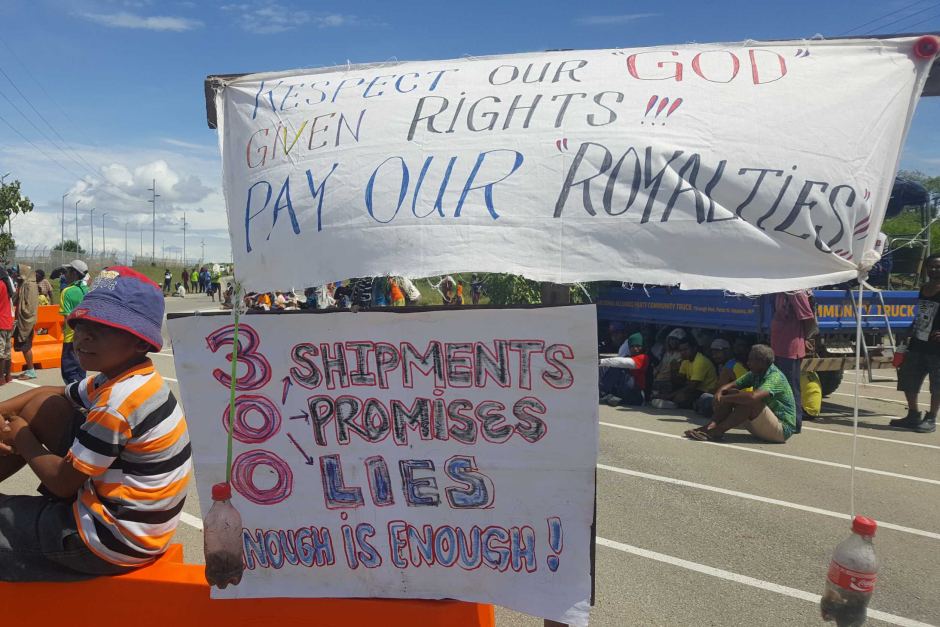 RESPECT OUR "GOD"
GIVEN RIGHTS!!!
PAY OUR "ROYALTIES"
300 SHIPMENTS
PROMISES
LIES
ENOUGH IS ENOUGH!
PARTY COMMUNITY TRUCK
OMMUNITY TRUCK
Coca-Cola